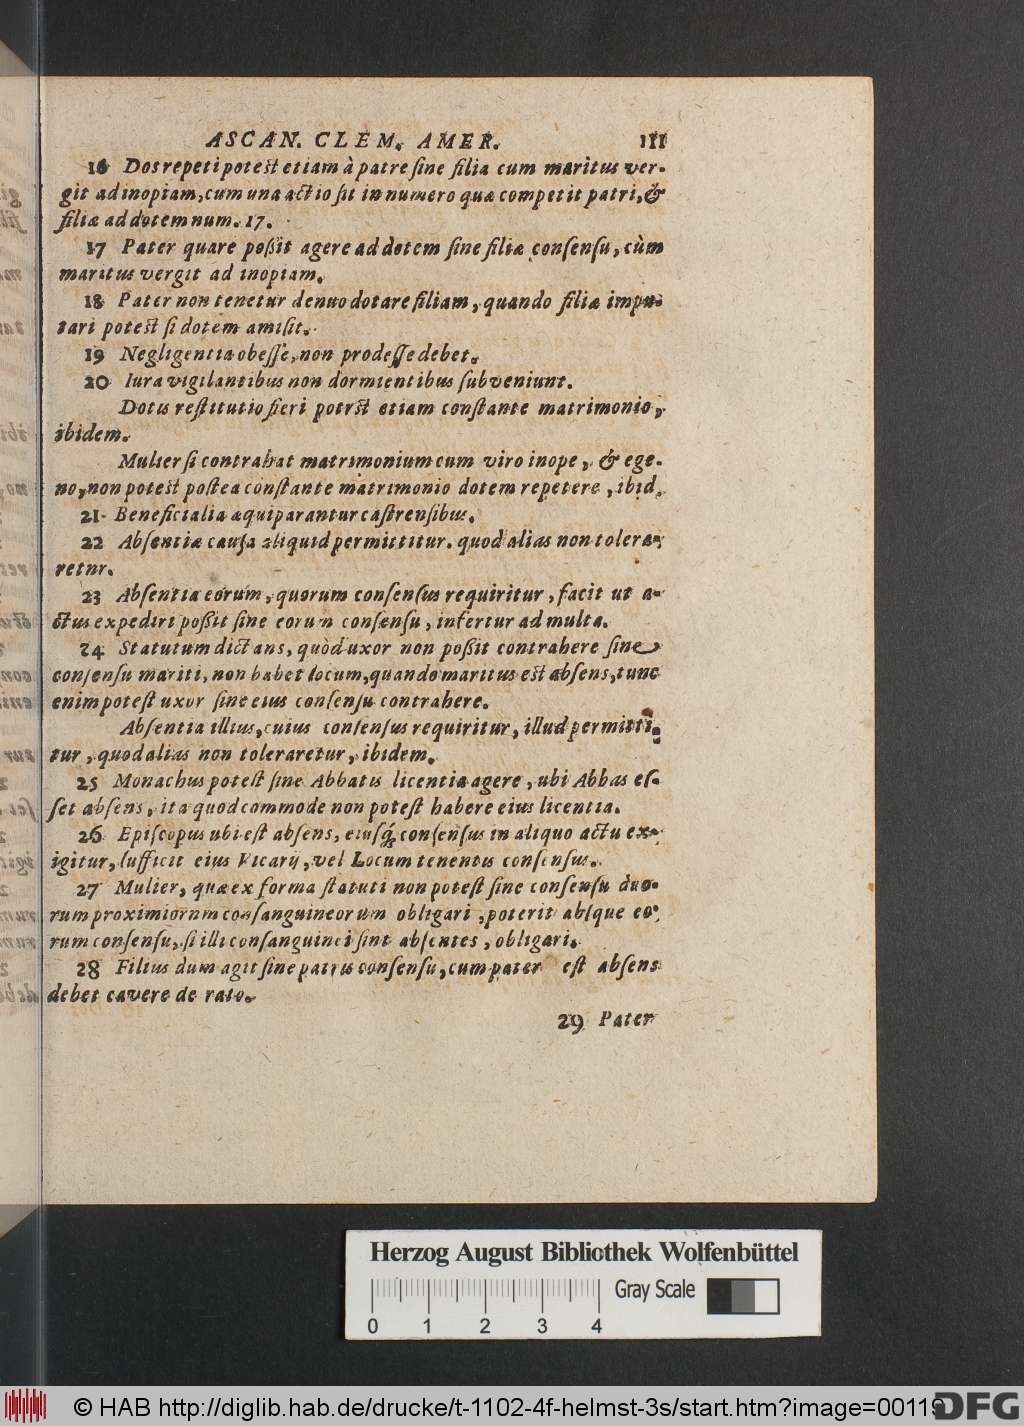 ASCAN. CLEM. AMER. 111
16 Dos repeti potest etiam à patre sine filia cum maritus ver-
git ad inopiam, cum una actio sit in numero quæ competit patri, &
filiæ ad dotem num. 17.
17 Pater quare poßit agere ad dotem sine filiæ consensu, cùm
maritus vergit ad inopiam.
18 Pater non tenetur denuo dotare filiam, quando filiæ impu-
tari potest si dotem amisit.
19 Negligentia obesse, non prodesse debet.
20 Iura vigilantibus non dormientibus subveniunt.
Dotis restitutio fieri potrst etiam constante matrimonio,
ibidem.
Mulier si contrahat matrimonium cum viro inope, & ege-
no, non potest postea constante matrimonio dotem repetere, ibid.
21 Beneficialia æquiparantur castrensibus.
22 Absentiæ causa aliquid permittitur. quod alias non tolera-
retur.
23 Absentia eorum, quorum consensus requiritur, facit ut a-
ctus expediri poßit sine eorum consensu, infertur ad multa.
24 Statutum dictans, quòd uxor non poßit contrahere sine
consensu mariti, non habet locum, quando maritus est absens, tunc
enim potest uxor sine eius consensu contrahere.
Absentia illius, cuius consensus requiritur, illud permitti-
tur, quod alias non toleraretur, ibidem.
25 Monachus potest sine Abbatis licentia agere, ubi Abbas es-
set absens, ita quod commode non potest habere eius licentia.
26 Episcopus ubi est absens, eiusq́; consensus in aliquo actu ex-
igitur, sufficit eius Vicarij, vel Locum tenentis consensus.
27 Mulier, quæ ex forma statuti non potest sine consensu duo-
rum proximiorum consanguineorum obligari, poterit absque eo-
rum consensu, si illi consanguinei sint absentes, obligari.
28 Filius dum agit sine patris consensu, cum pater est absens
debet cavere de rato.
29 Pater
Herzog August Bibliothek Wolfenbüttel
Gray Scale
0 1 2 3 4
© HAB http://diglib.hab.de/drucke/t-1102-4f-helmst-3s/start.htm?image=00119
DFG